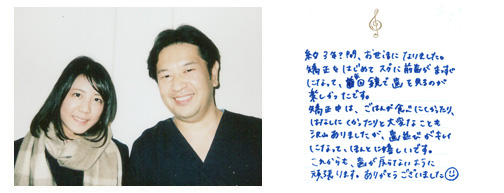 約3年?間、お世話になりました。
矯正をはじめてスグに前歯がまっすぐ
になって、毎回鏡で歯を見るのが
楽しかったです。
矯正中は、ごはんが食べにくかったり、
はなしにくかったりと大変なことも
沢山ありましたが、歯並びがキレイ
になって、ほんとに嬉しいです。
これからも、歯が戻らないように
頑張ります。ありがとうございました